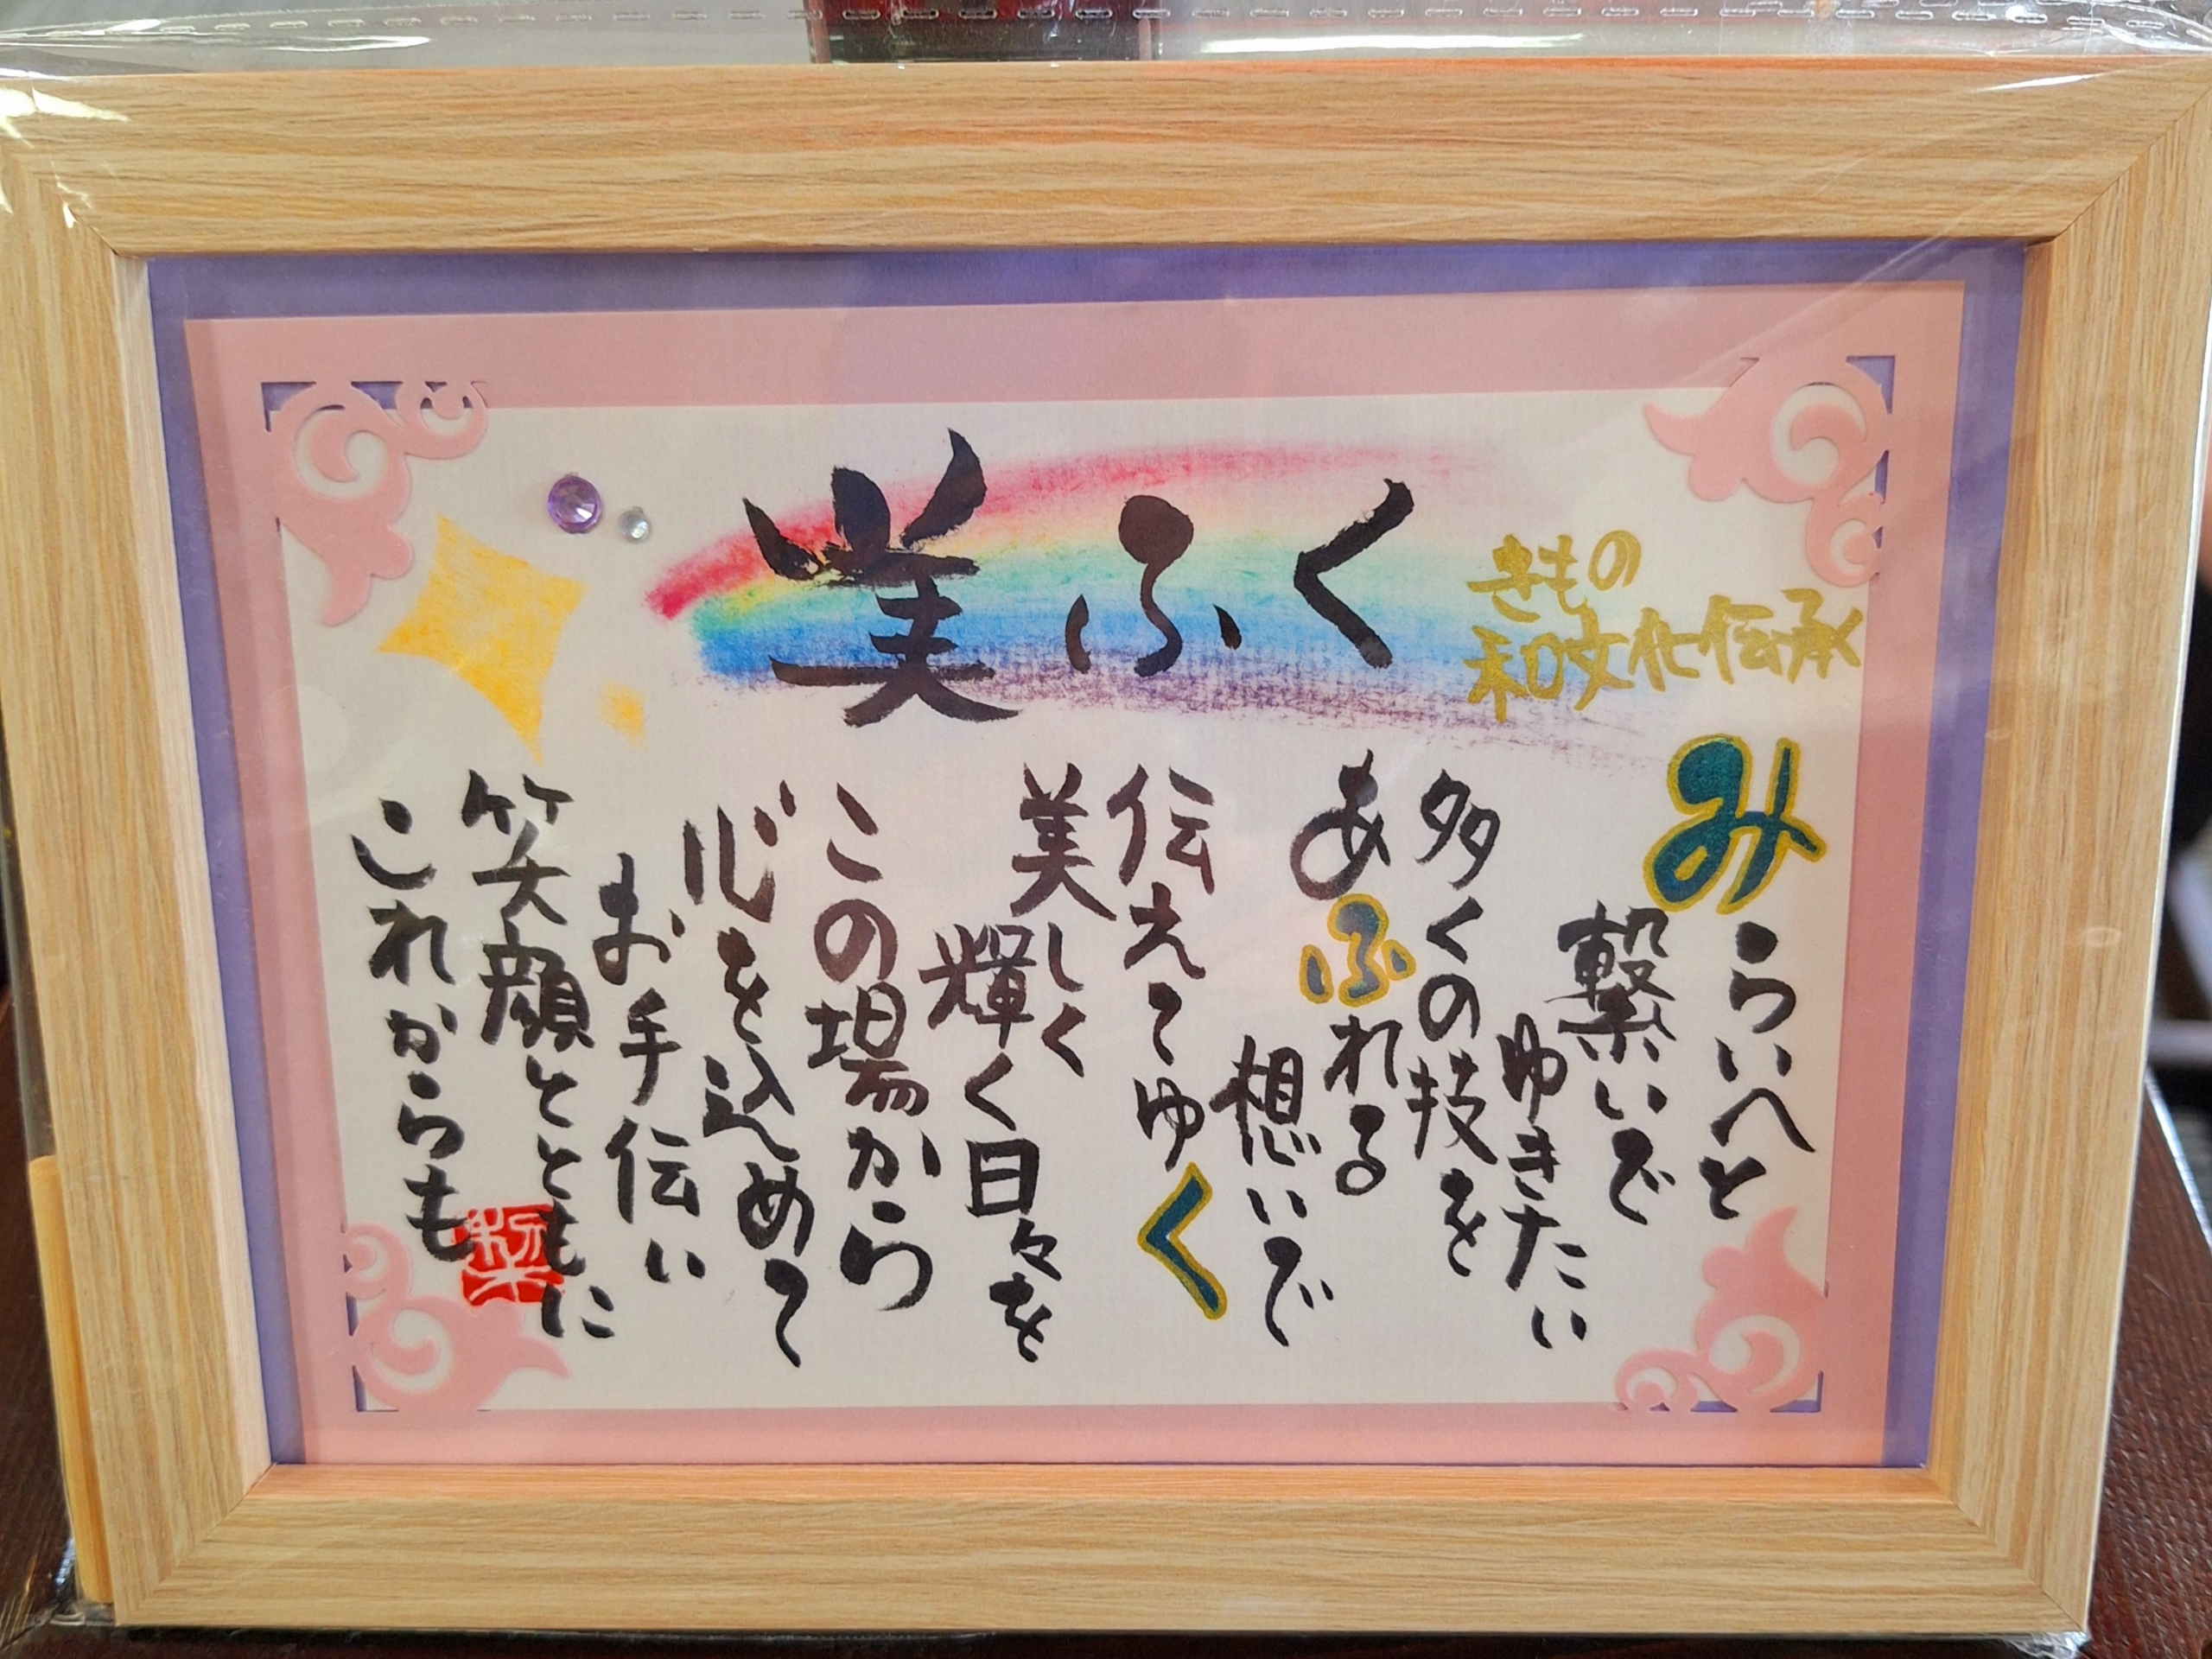 美ふく
きもの
和文化伝承
みらいへと
繋いで
ゆきたい
多くの技を
あふれる
想いで
伝えてゆく
美しく
輝く日々を
この場から
心を込めて
お手伝い
笑顔とともに
これからも